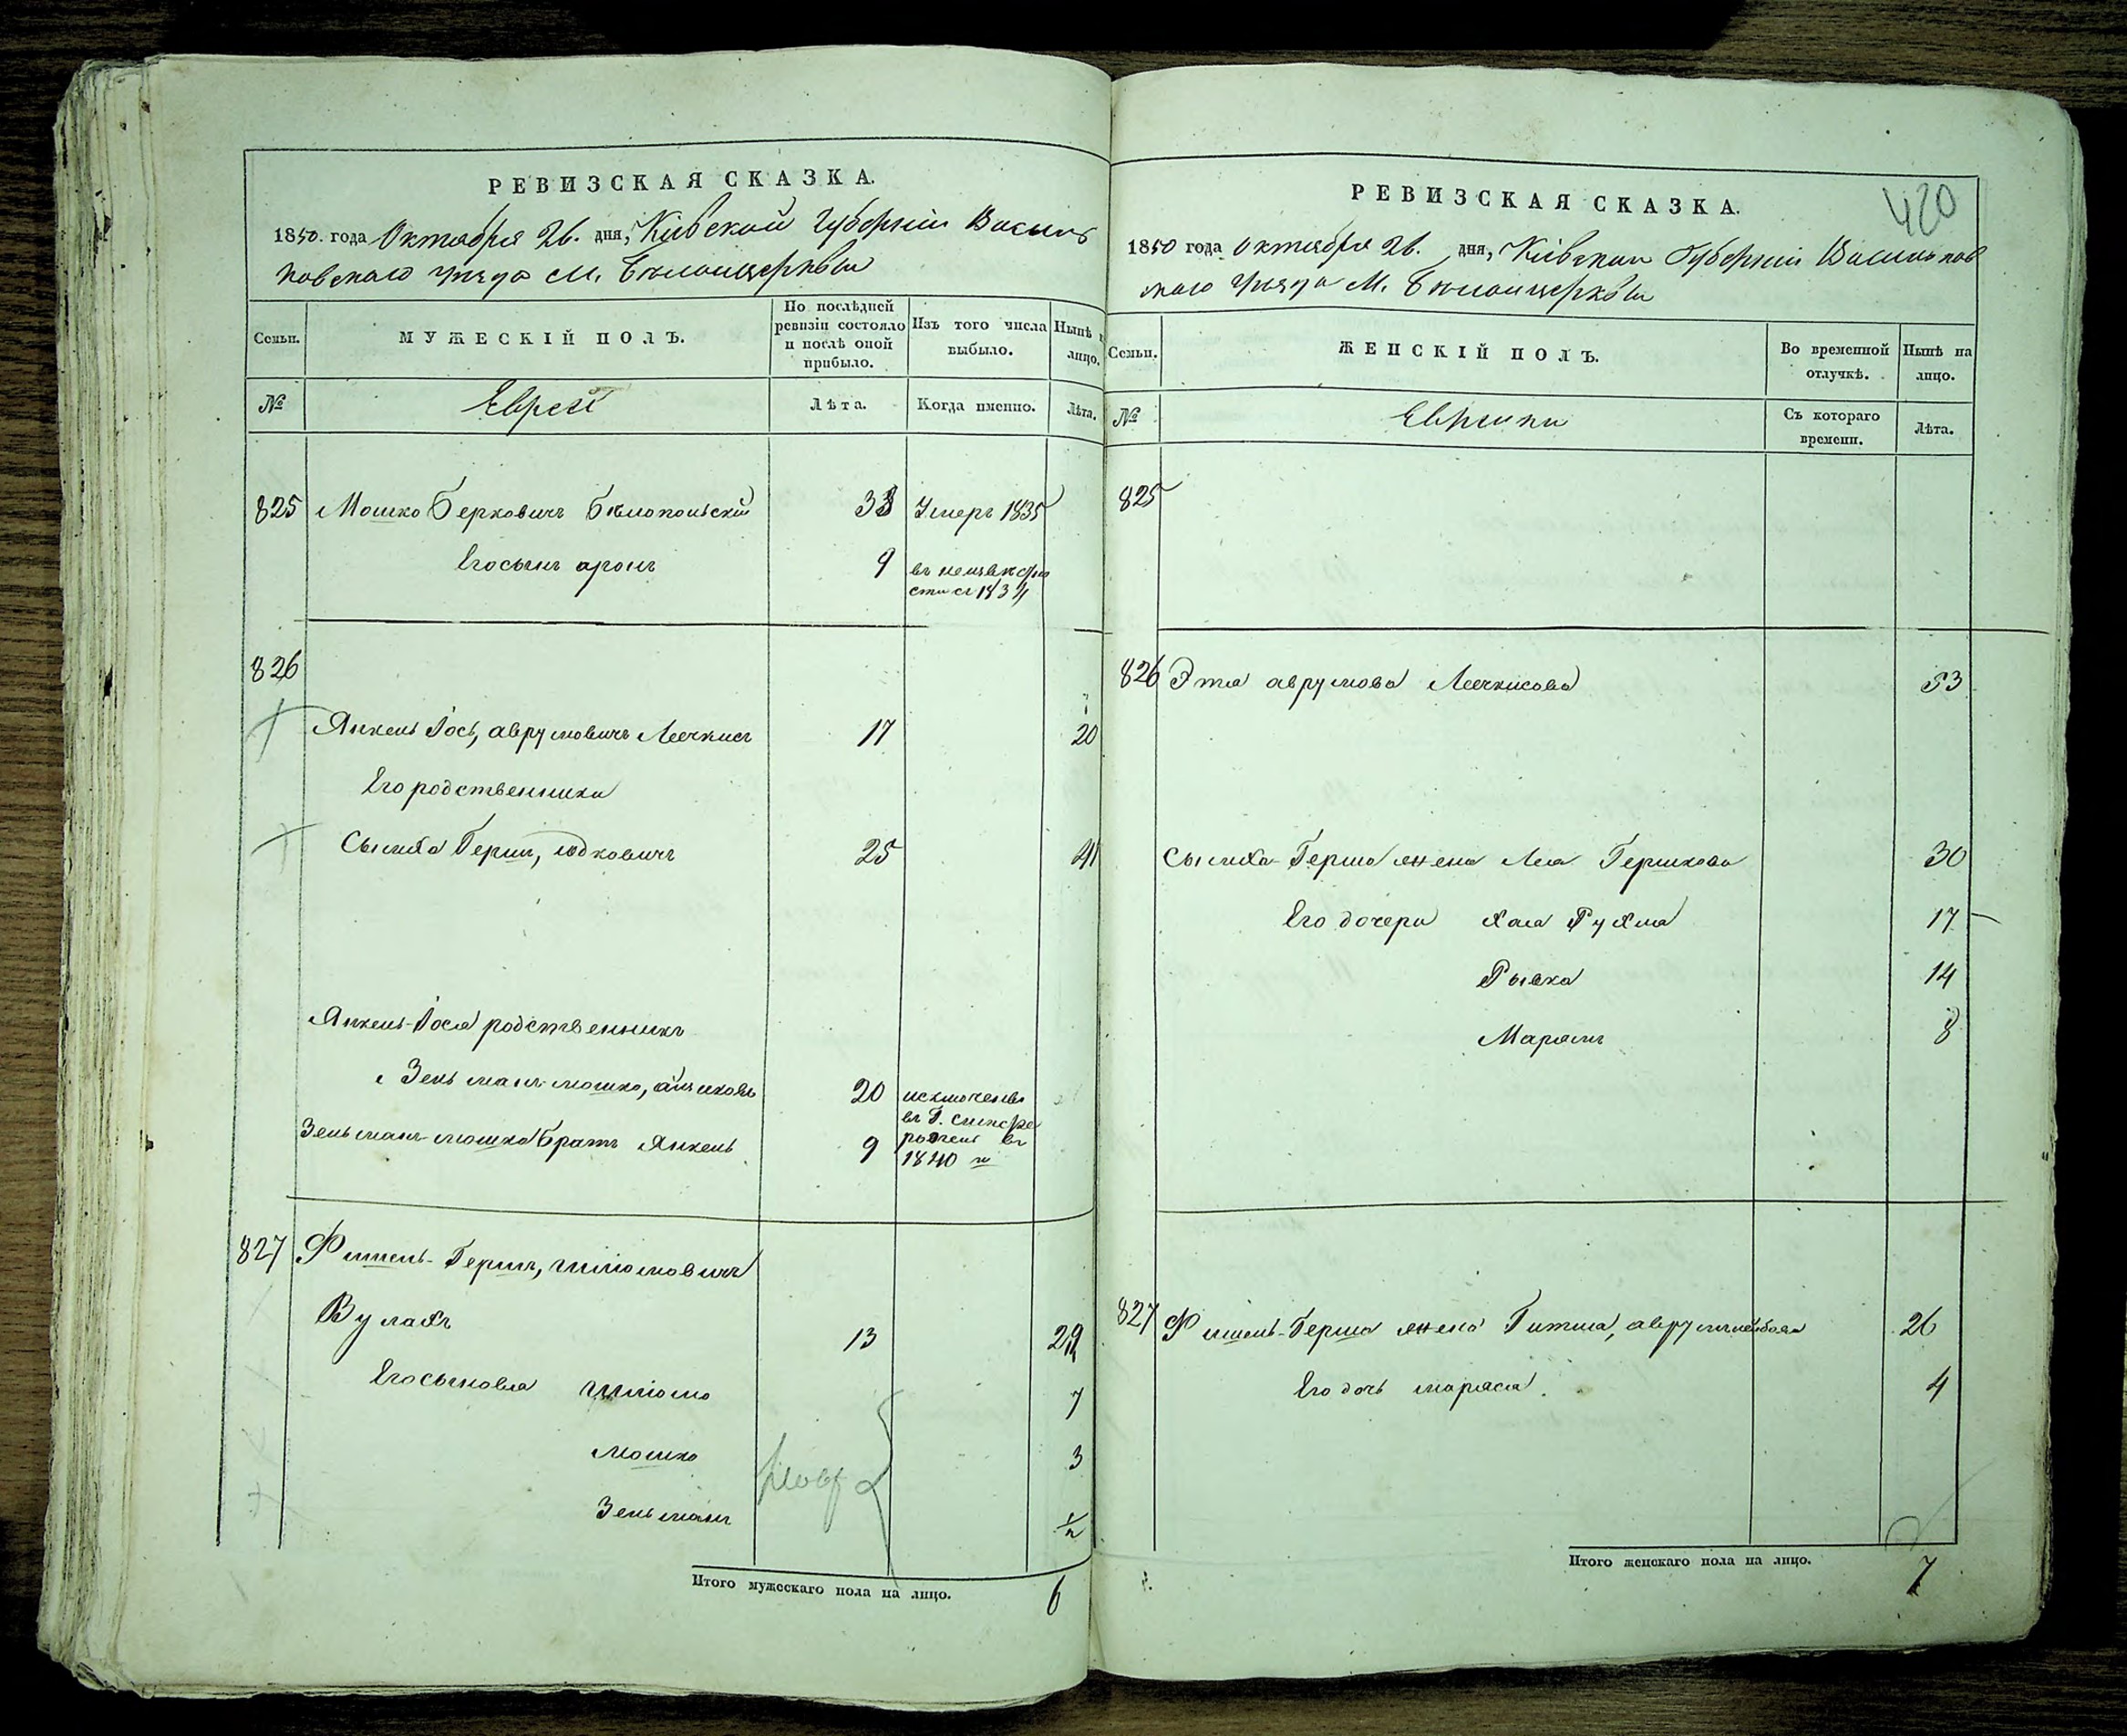 РЕВИЗСКАЯ СКАЗКА.
1850. года Октября 26. дня, Кіевской Губерніи Василь
ковскаго уезда М. Белоицеркви
Семьи.
МУЖЕСКІЙ ПОЛЪ.
По послѣдней
ревизіи состояло
и послѣ оной
прибыло.
Изъ того числа
выбыло.
Нынѣ
лицо.
№
Евреи
Лѣта.
Когда именно.
Лѣта.
825 Мошко Берковичъ Белопольскій 33 Умеръ 1835
Его сынъ аронъ 9 въ неизвестно
сти съ 1834
826
Янкель Іось, аврумовичъ 17 20
Его родственники
Сымха Гершъ, юдковичъ 25 41
Янкель-Іося родственникъ
Зельманъ мошко, 20 исключенъ
въ Г.
Зельманъ мошко братъ Янкель 9
въ
1840
827 Фишель-Гершъ, шлiомовичъ
Вулахъ 13 29
Его сыновья шлiомо 7
Мошко 3
Зельманъ ½
Итого мужескаго пола на лицо. 6
420
РЕВИЗСКАЯ СКАЗКА.
1850 года октября 26. дня, Кіевской Губерніи Васильков
скаго уезда М. Белоицеркви
Семьи.
ЖЕНСКІЙ ПОЛЪ.
Во временной
отлучкѣ.
Нынѣ на
лицо.
№
Еврейки
Съ котораго
времени.
Лѣта.
825
826 Эта аврумова 53
Сымха-Герша жена Лея Гершкова 30
Его дочери Хая Рухля 17
Рывка 14
Марямъ 8
827 Фишель-Герша жена Гитля, 26
Его дочь маряся. 4
Итого женскаго пола на лицо. 7